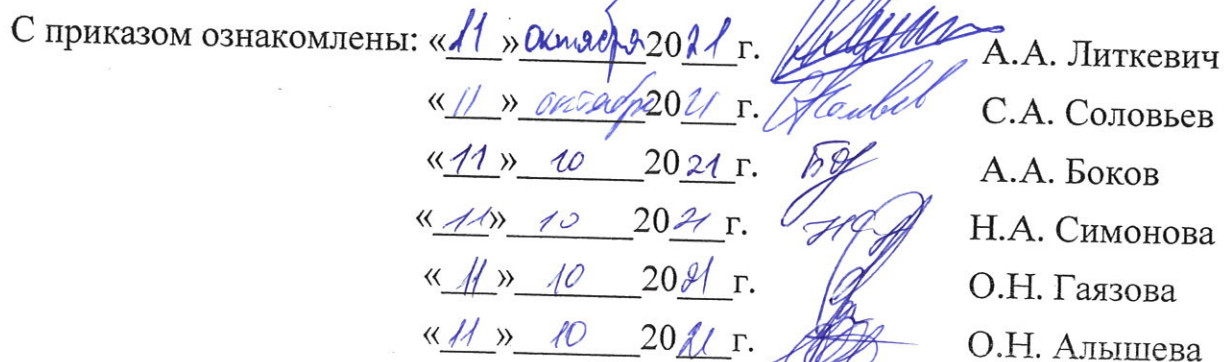 С приказом ознакомлены: «11» октября 2021 г. А.А. Литкевич
«11» октября 2021 г. С.А. Соловьев
«11» 10 2021 г. А.А. Боков
«11» 10 2021 г. Н.А. Симонова
«11» 10 2021 г. О.Н. Гаязова
«11» 10 2021 г. О.Н. Алышева